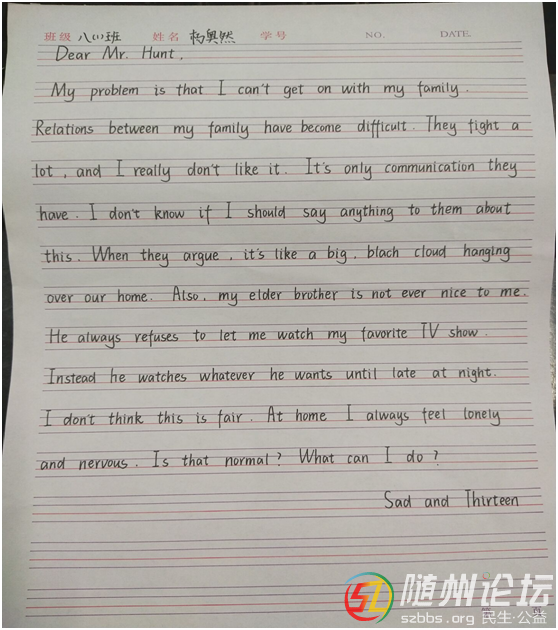 班级 八(1)班 姓名 杨奥然 学号 NO. DATE.
Dear Mr. Hunt,
My problem is that I can't get on with my family.
Relations between my family have become difficult. They fight a
lot, and I really don't like it. It's only communication they
have. I don't know if I should say anything to them about
this. When they argue, it's like a big, blach cloud hanging
over our home. Also, my elder brother is not ever nice to me.
He always refuses to let me watch my favorite TV show.
Instead he watches whatever he wants until late at night.
I don't think this is fair. At home I always feel lonely
and nervous. Is that normal? What can I do?
Sad and Thirteen
随州论坛
szbbs.org 民生·公益